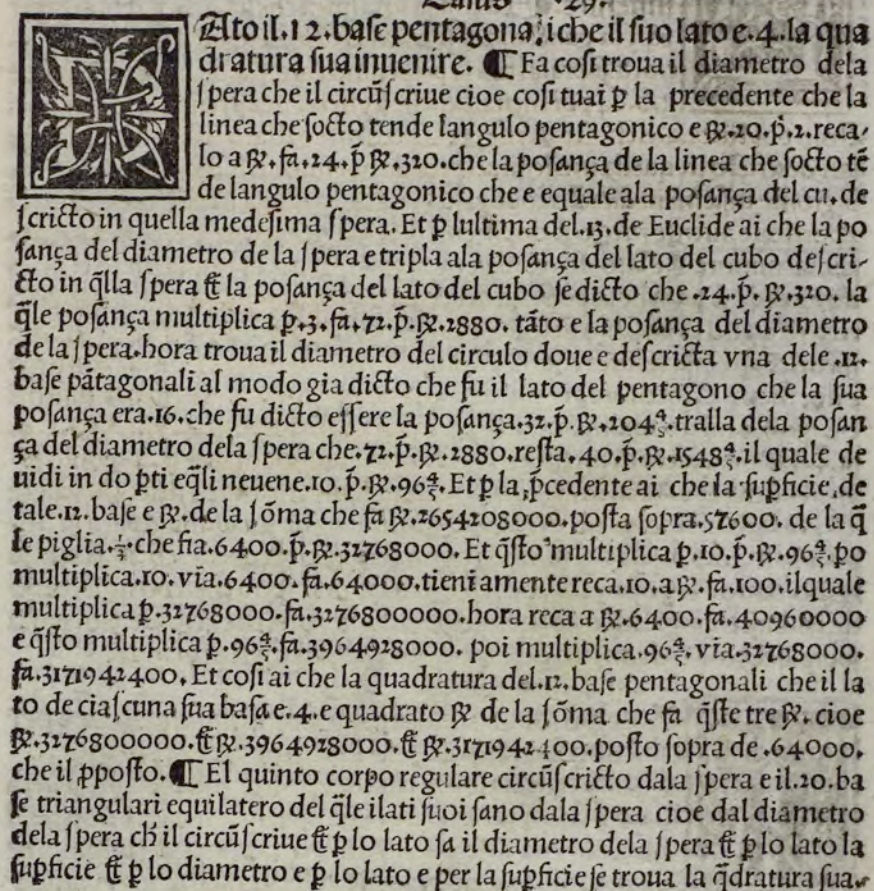 Casus .29.
DAto il.12.base pentagona; iche il suo lato e.4.la qua
dratura sua inuenire. ¶ Fa cosi troua il diametro dela
spera che il circũscriue cioe cosi tuai ꝑ la precedente che la
linea che socto tende langulo pentagonico e ℞.20.p̃.2.reca-
lo a ℞.fa.24.p̃ ℞.320.che la posança de la linea che socto tẽ
de langulo pentagonico che e equale ala posança del cu.de
scricto in quella medesima spera. Et ꝑ lultima del.13.de Euclide ai che la po
sança del diametro de la spera e tripla ala posança del lato del cubo descri-
cto in q̃lla spera & la posança del lato del cubo se dicto che .24.p̃. ℞.320. la
q̃le posança multiplica ꝑ.3.fa.72.p̃.℞.2880. tãto e la posança del diametro
de la spera.hora troua il diametro del circulo doue e descricta vna dele .12.
base pãtagonali al modo gia dicto che fu il lato del pentagono che la sua
posança era.16.che fu dicto essere la posança.32.p̃.℞.204⅘.tralla dela posan
ça del diametro dela spera che.72.p̃.℞.2880.resta.40.p̃.℞.1548⅘.il quale de
uidi in do ꝑti eq̃li neuene.10.p̃.℞.96⅘. Et ꝑ la p̃cedente ai che la supficie de
tale.12.base e ℞.de la sõma che fa ℞.2654208000.posta sopra.57600. de la q̃
le piglia.⅓.che fia.6400.p̃.℞.32768000. Et q̃sto multiplica ꝑ.10.p̃.℞.96⅘.po
multiplica.10.via.6400.fa.64000.tieni amente reca.10.a ℞.fa.100.ilquale
multiplica ꝑ.32768000.fa.3276800000.hora reca a ℞.6400.fa.40960000
e q̃sto multiplica ꝑ.96⅘.fa.3964928000. poi multiplica.96⅘.via.32768000.
fa.3171942400. Et cosi ai che la quadratura del.12.base pentagonali che il la
to de ciascuna sua basa e.4.e quadrato ℞ de la sõma che fa q̃ste tre ℞. cioe
℞.3276800000.&℞.3964928000.& ℞.3171942400.posto sopra de .64000.
che il ꝓposto. ¶ El quinto corpo regulare circũscricto dala spera e il.20.ba
se triangulari equilatero del q̃le ilati suoi sano dala spera cioe dal diametro
dela spera ch̃ il circũscriue & ꝑ lo lato sa il diametro dela spera & ꝑ lo lato la
supficie & ꝑ lo diametro e ꝑ lo lato e per la supficie se troua la q̃dratura sua.